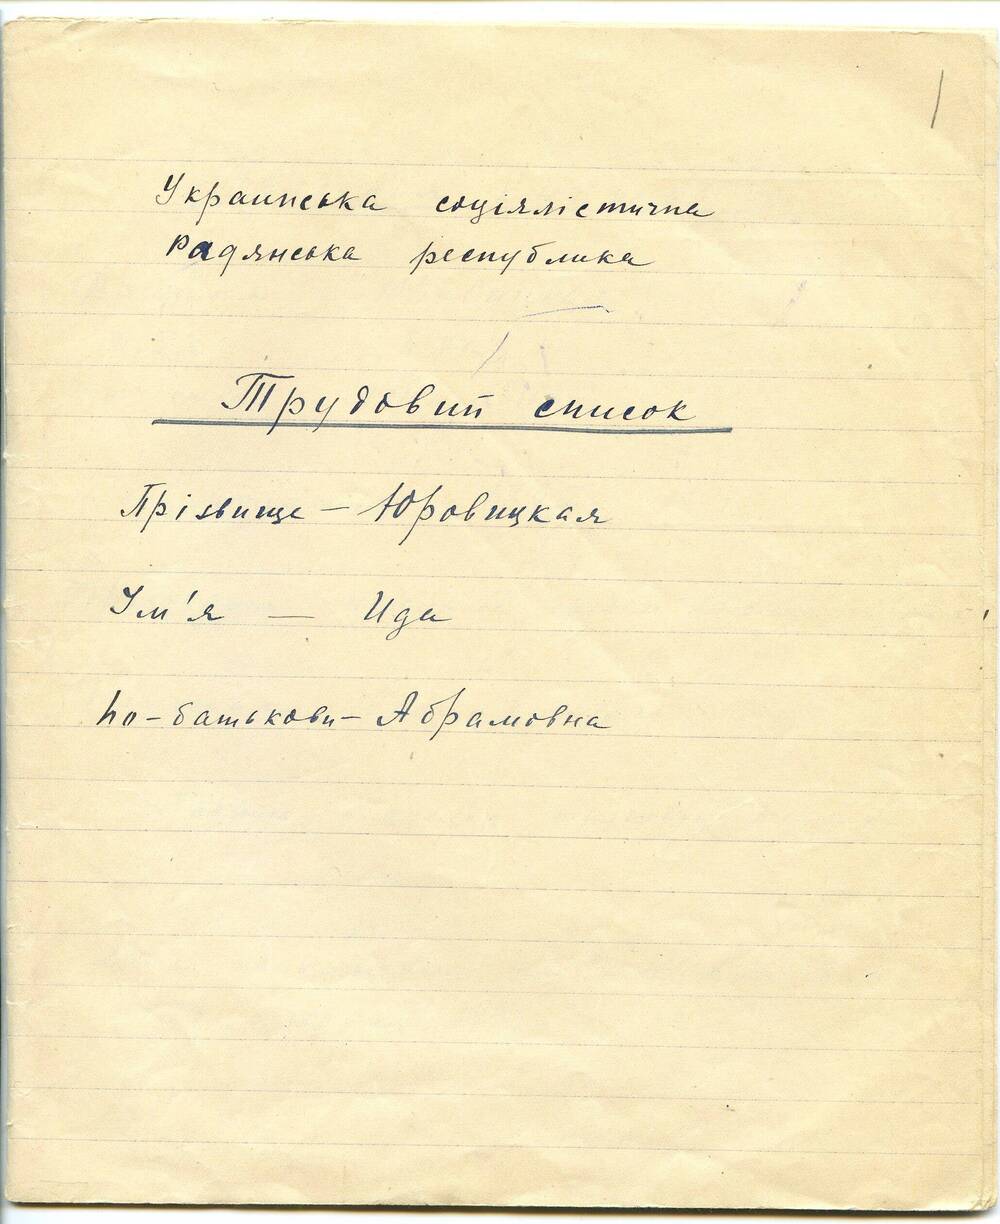 1
Украинська соціялістична
Радянська республика
Трудовий список
Прізвище - Юровицкая
Им'я - Ида
по-батькови - Абрамовна